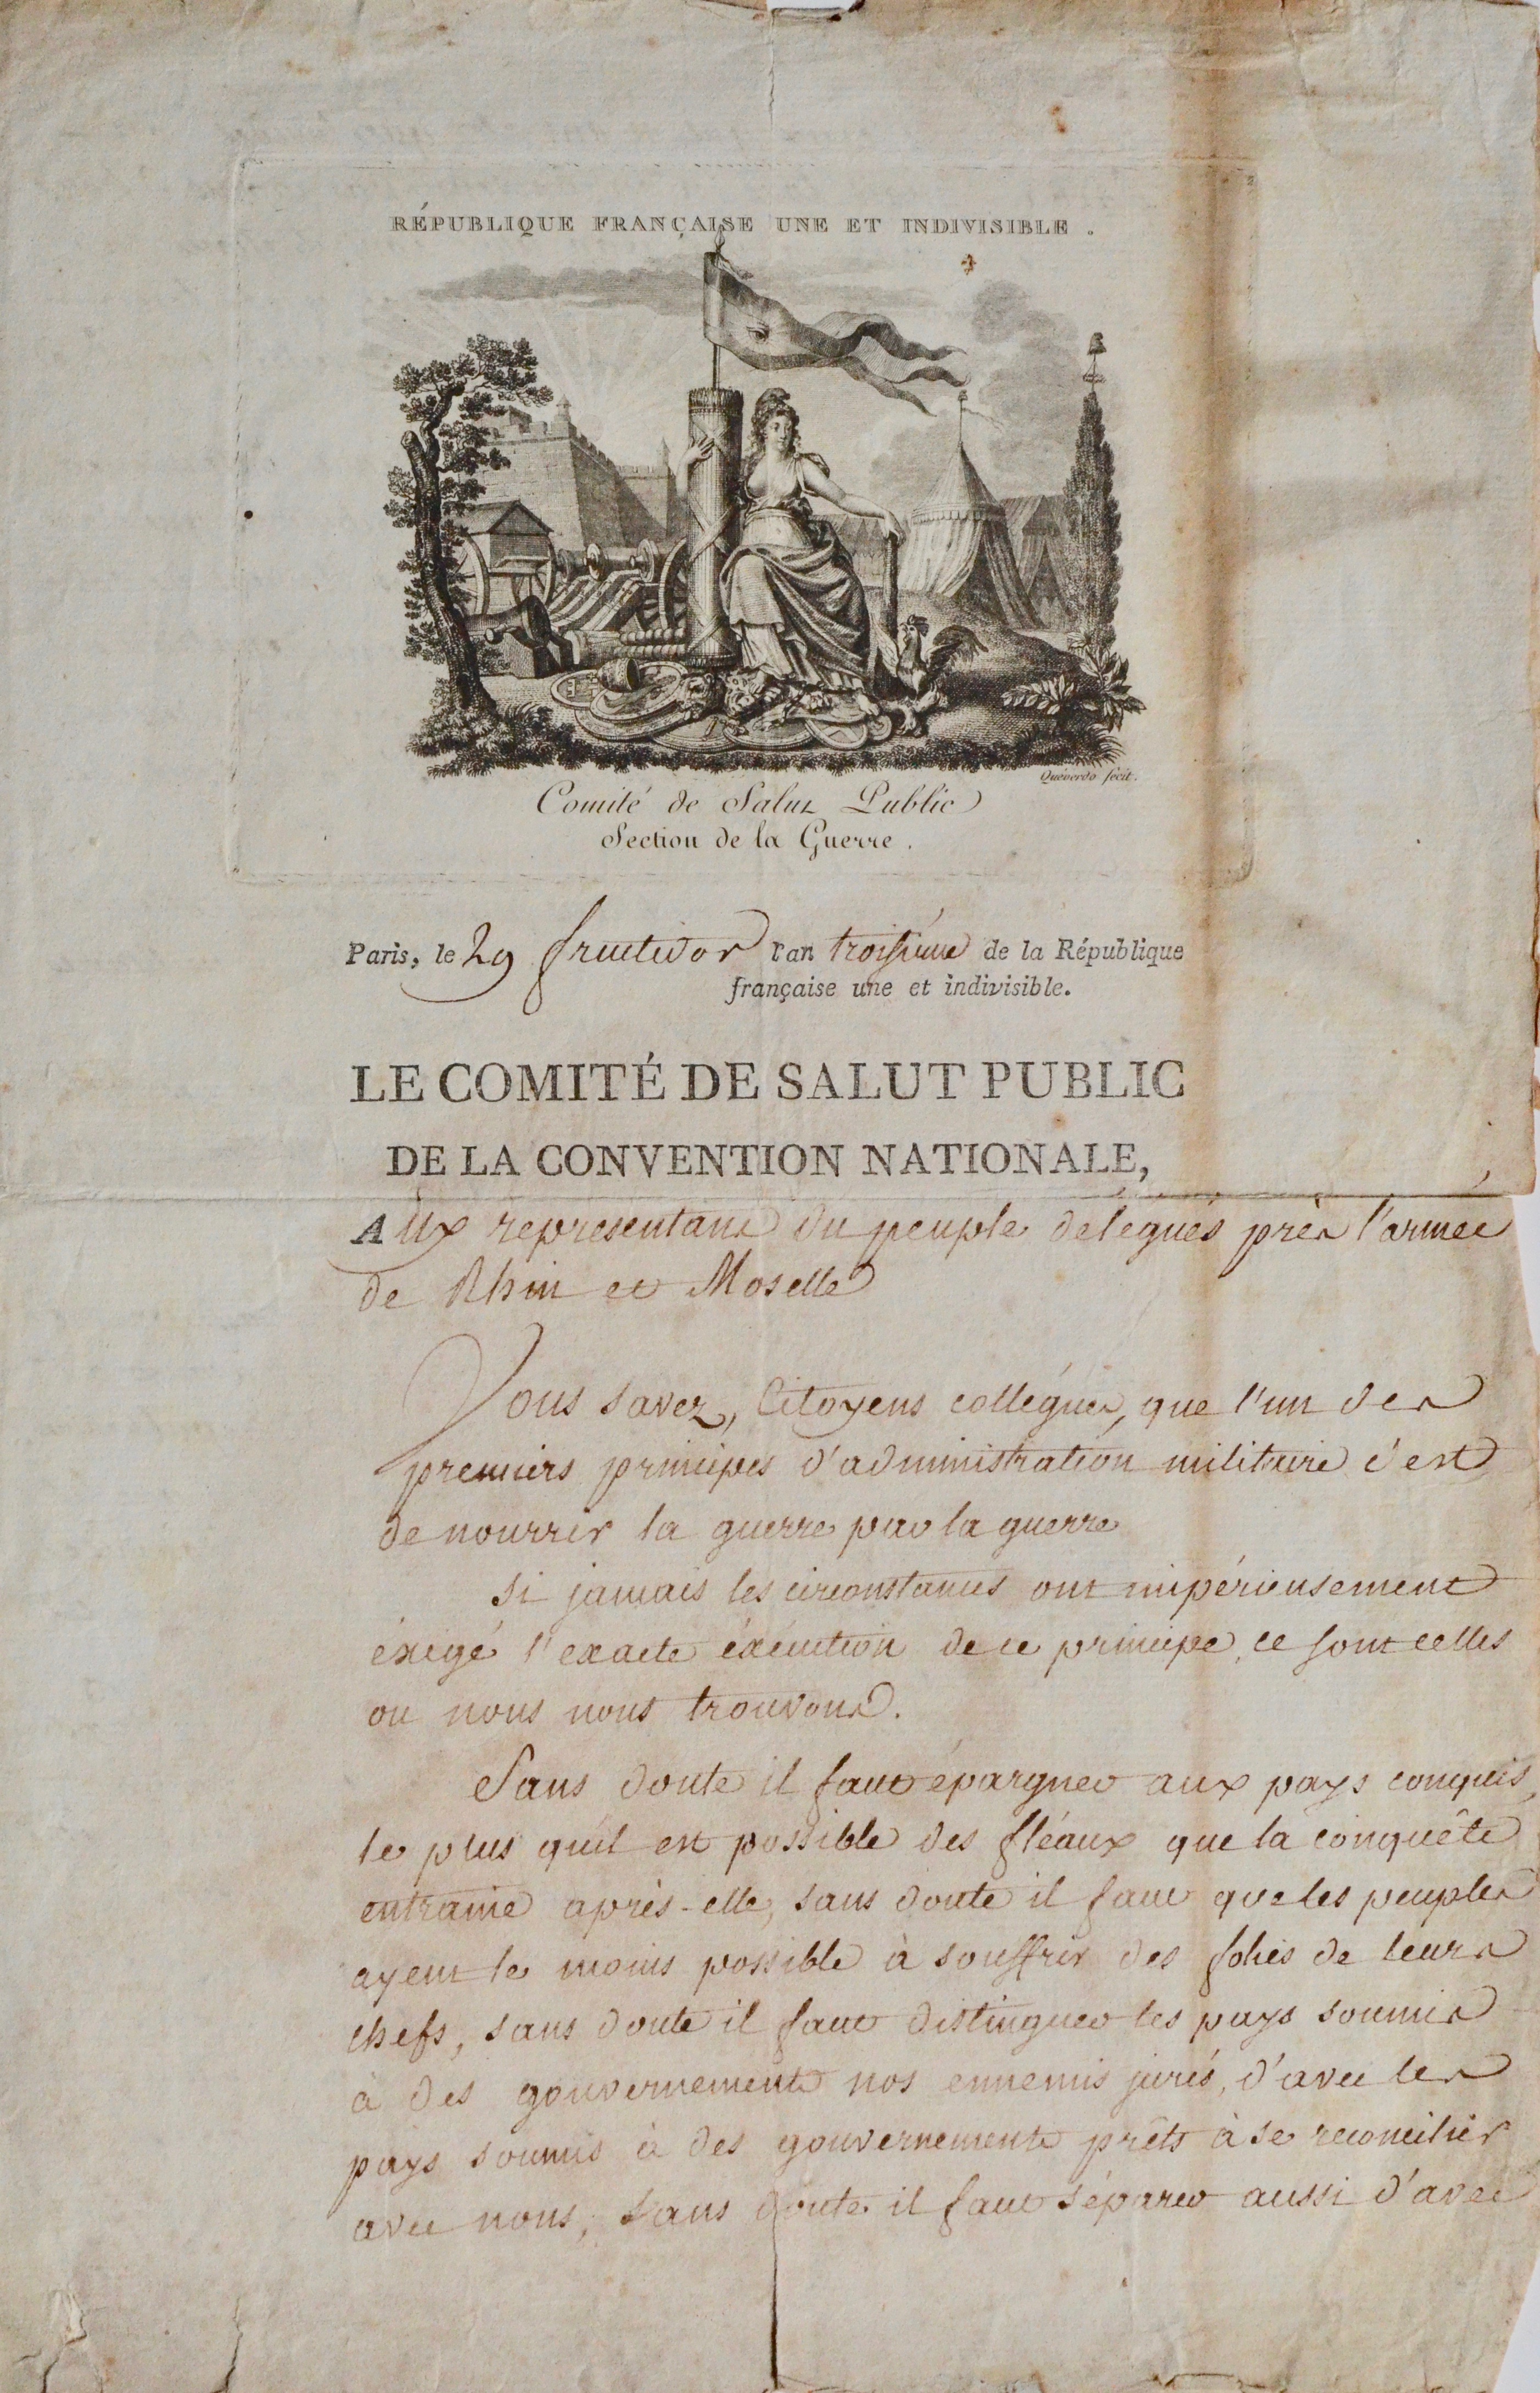 RÉPUBLIQUE FRANÇAISE UNE ET INDIVISIBLE .
Queverdo fecit.
Comité de Salut Public
Section de la Guerre .
Paris, le 29 fructidor l'an troisieme de la République
française une et indivisible.
LE COMITÉ DE SALUT PUBLIC
DE LA CONVENTION NATIONALE,
Aux représentans du peuple délégués près l'armée
de Rhin et Moselle
Vous savez, Citoyens collégues, que l'un des
premiers principes d'administration militaire c'est
de nourrir la guerre par la guerre
si jamais les circonstances ont impérieusement
éxigé l'exacte éxécution de ce principe, ce sont celles
ou nous nous trouvons.
Sans doute il faut épargner aux pays conquis,
le plus qu'il est possible des fléaux que la conquête
entraine après-elle, sans doute il faut que les peuples
ayent le moins possible à souffrir des folies de leurs
chefs, sans doute il faut distinguer les pays soumis
à des gouvernements nos ennemis jurés, d'avec les
pays soumis à des gouvernements prêts à se reconcilier
avec nous, Sans doute il faut séparer aussi d'avec